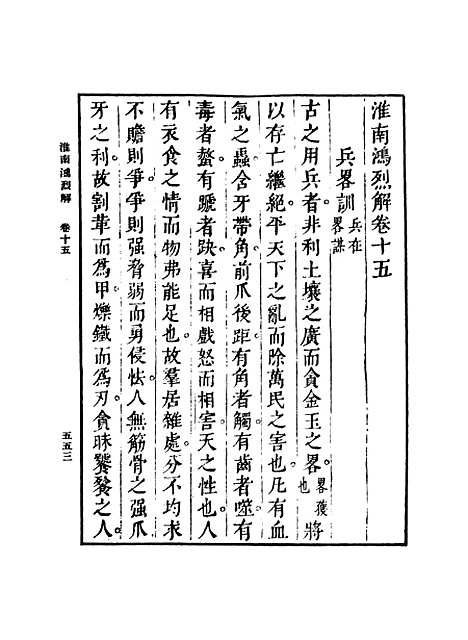 淮南鴻烈解卷十五
兵畧訓 兵在畧謀
古之用兵者非利土壤之廣而貪金玉之畧 畧獲也 將
以存亡繼絕平天下之亂而除萬民之害也凡有血
氣之蟲含牙帶角前爪後距有角者觸有齒者噬有
毒者螫有蹏者趹喜而相戲怒而相害天之性也人
有衣食之情而物弗能足也故羣居雜處分不均求
不贍則爭爭則强脅弱而勇侵怯人無筋骨之强爪
牙之利故割革而爲甲爍鐵而爲刃貪昧饕餮之人
淮南鴻烈解 卷十五
五五三